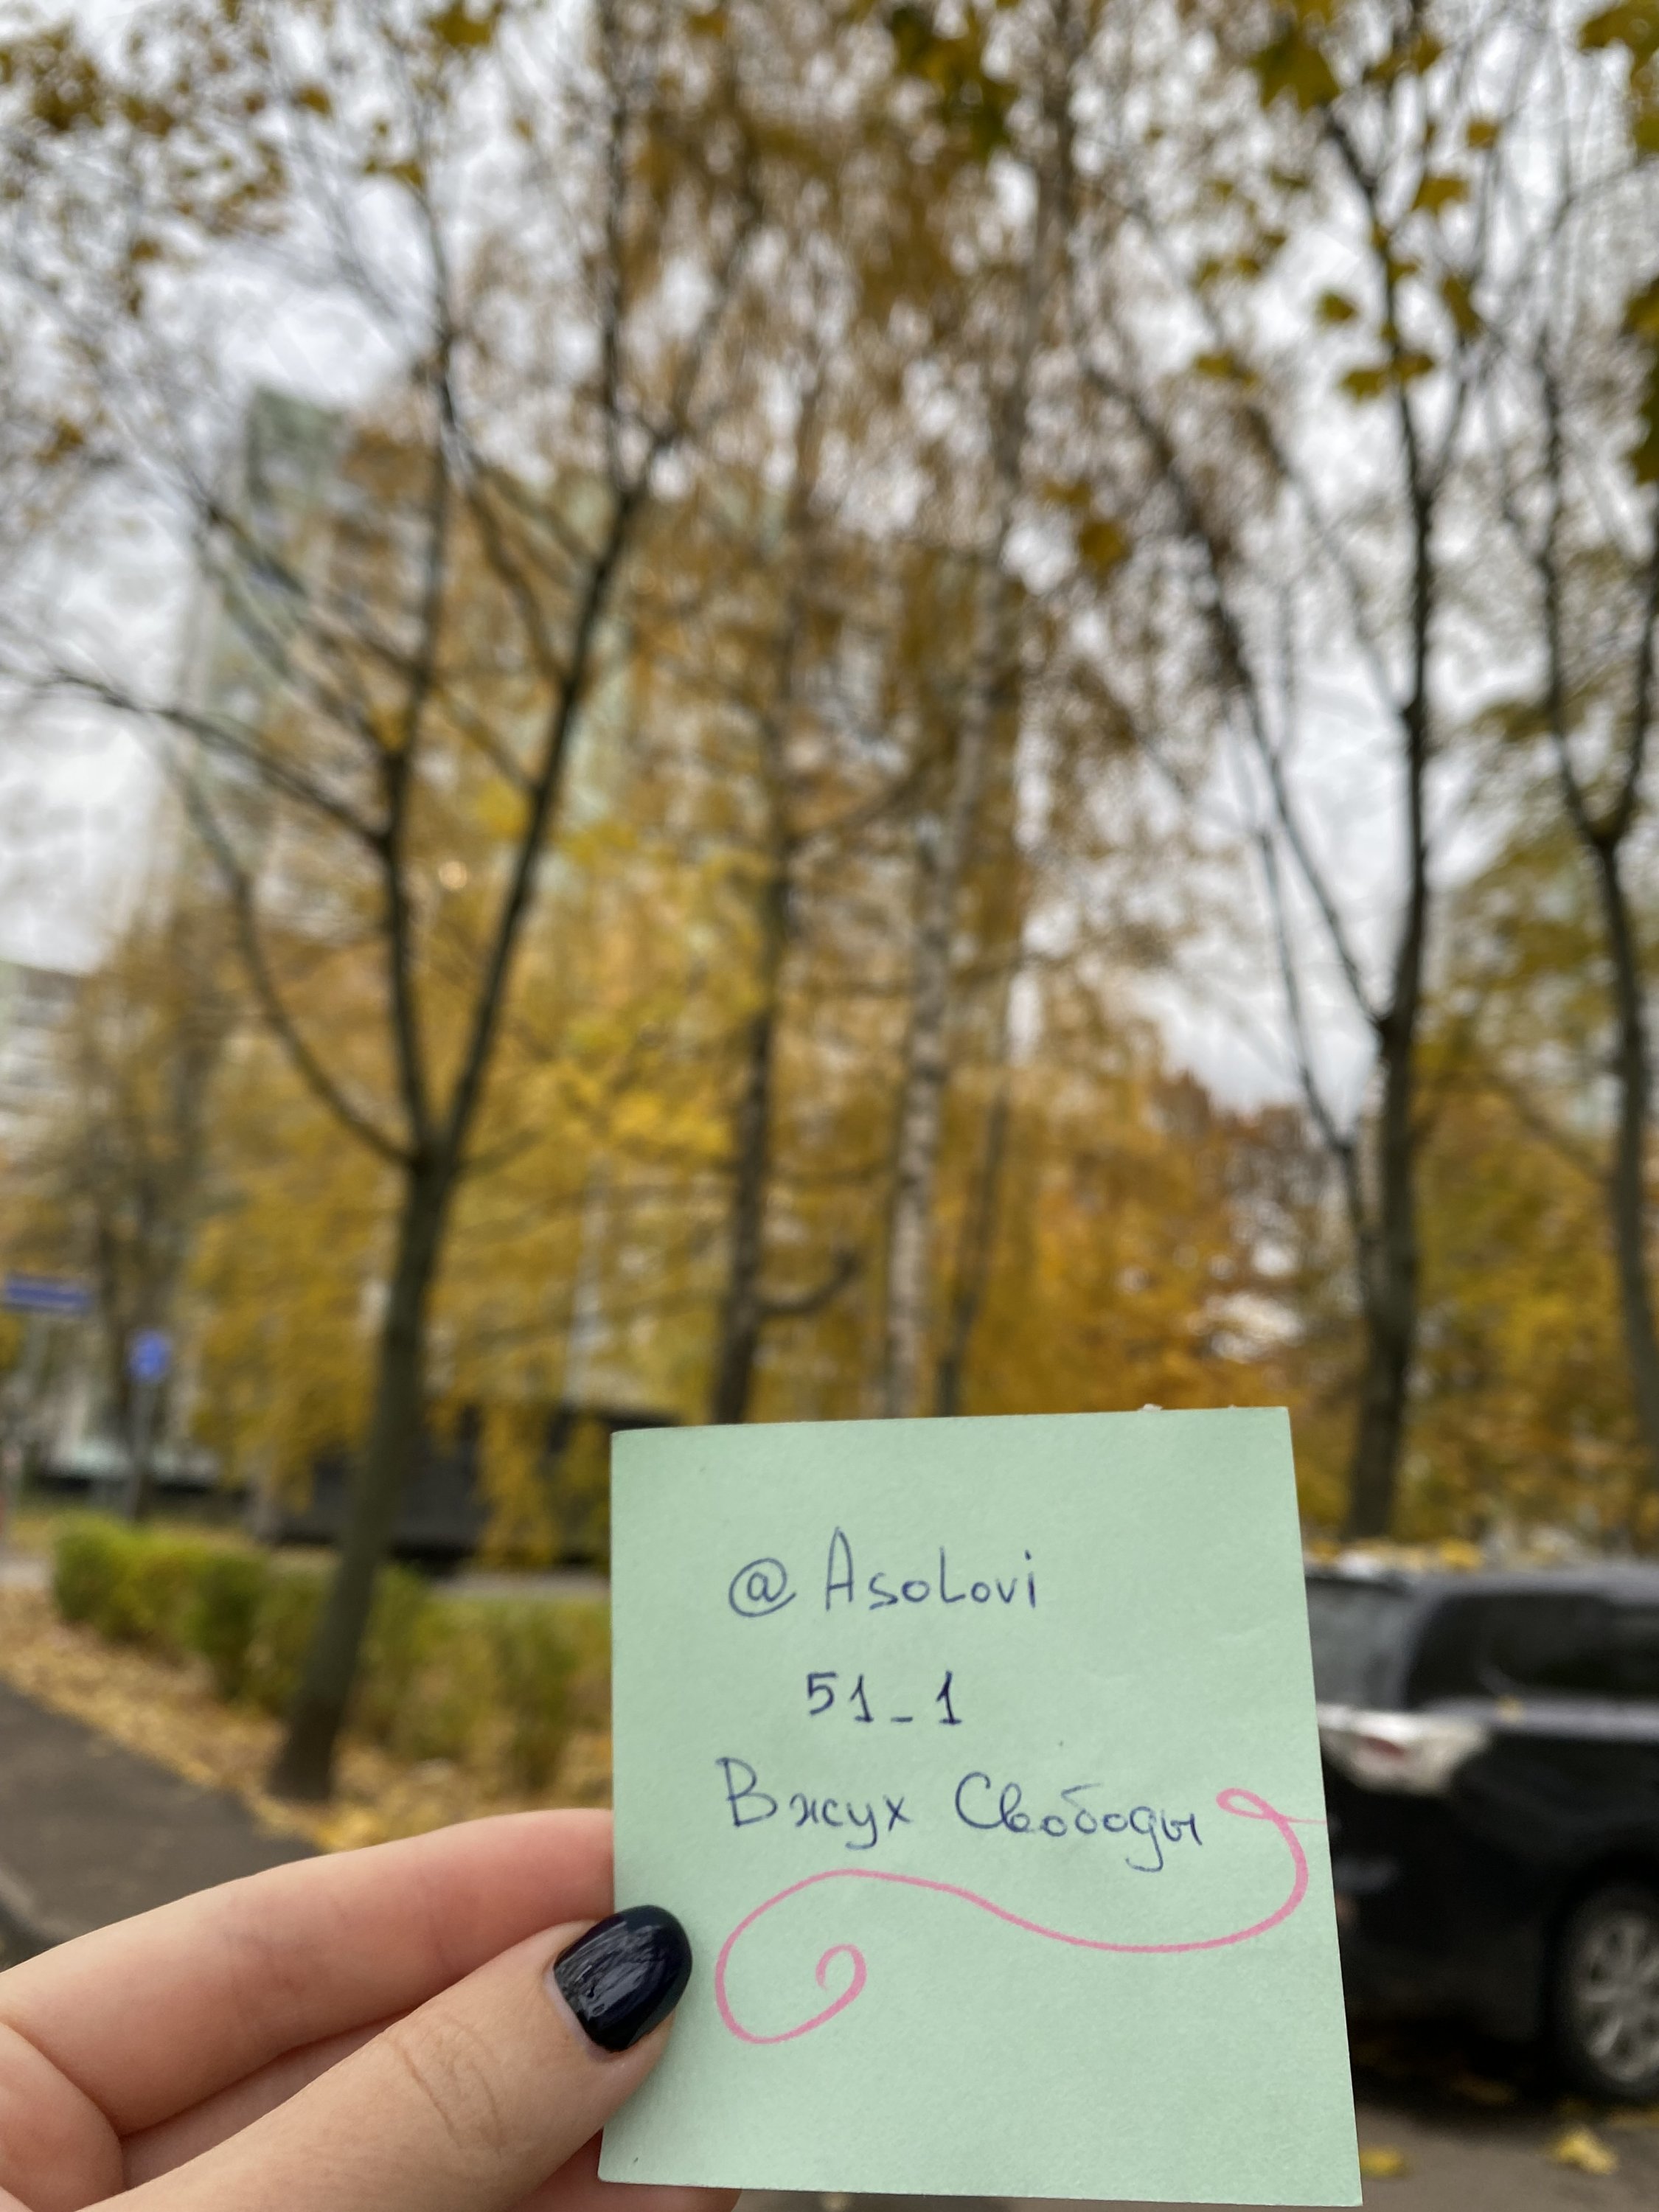 @Asolovi
51_1
Вжух Свободы